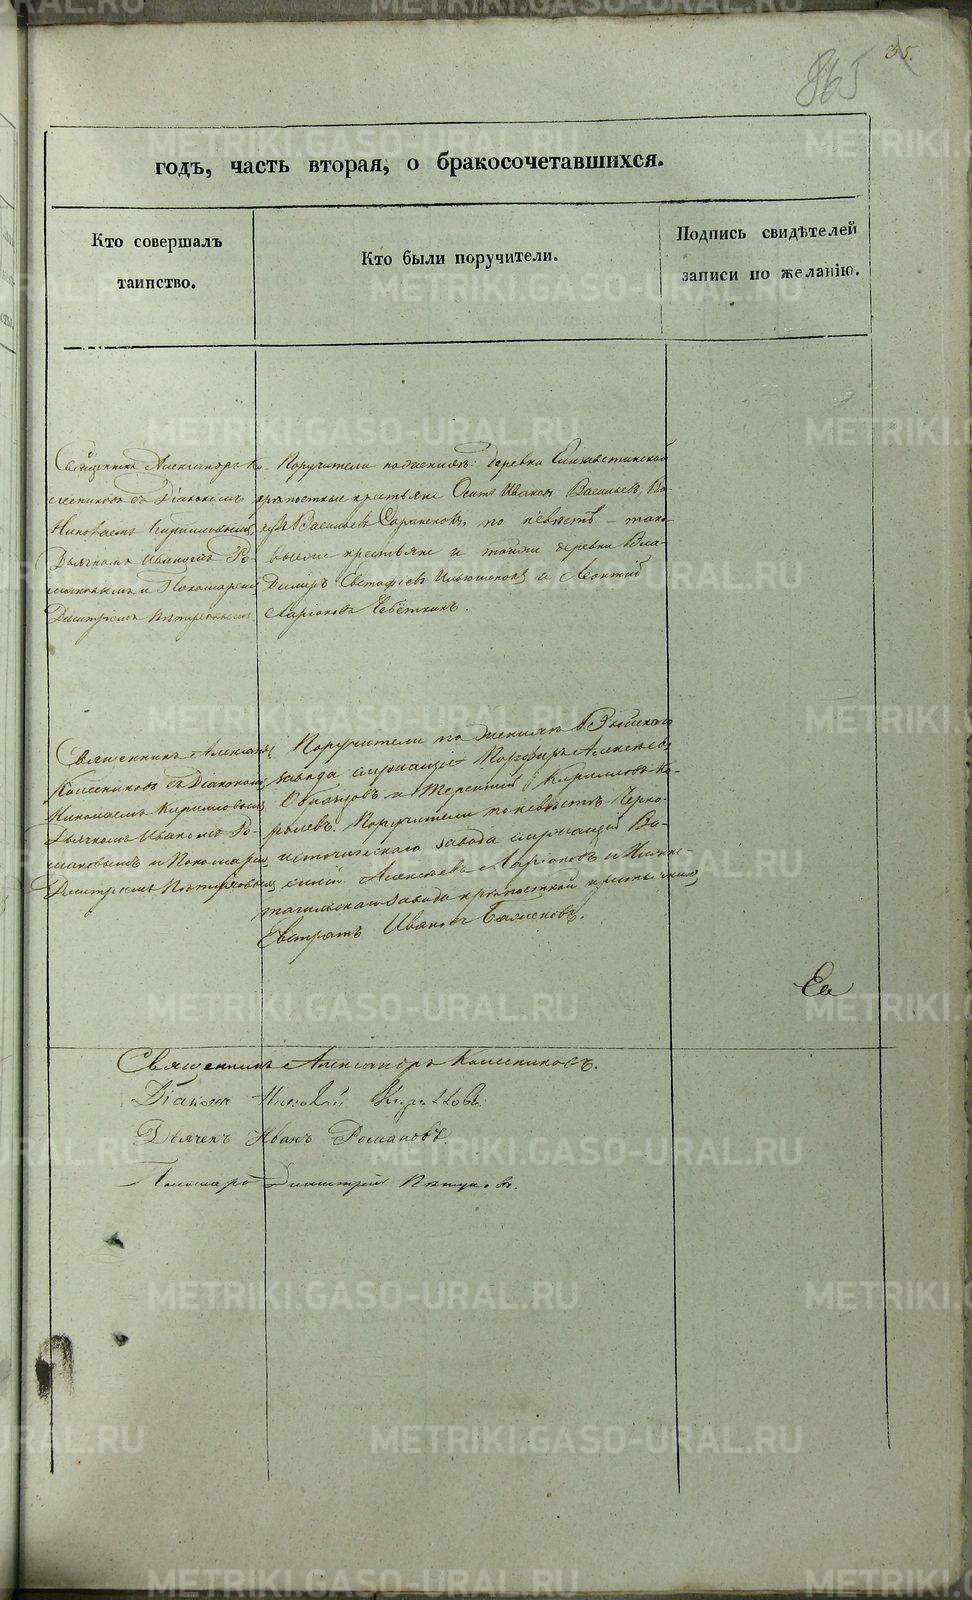 865
35.
годъ, часть вторая, о бракосочетавшихся.
Кто совершалъ
таинство.
Кто были поручители.
Подпись свидѣтелей
записи по желанію.
Священникъ Александръ Ко-
лесниковъ съ Діакономъ
Николаемъ Кирилловымъ,
Дьячкомъ Иваномъ Ро-
мановымъ и Пономаремъ
Димитріемъ
Поручители по женихѣ: деревни Елизаветинской
крѣпостные крестьяне Осипъ Ивановъ Васильевъ,
Васильевъ по невѣстѣ – тако-
выеже крестьяне и тойже деревни Вла-
димиръ и Леонтій
Ларіоновъ
Священникъ Александръ
Колесниковъ съ Діакономъ
Николаемъ Кирилловымъ
Дьячкомъ Иваномъ Ро-
мановымъ и Пономаремъ
Димитріемъ
Поручители по женихѣ Выйскаго
завода служащіе Порфиръ Алексѣевъ
и Терентій Кирилловъ Ко-
ролевъ. Поручители по невѣстѣ Черно-
источинскаго завода служащій Ва-
силій Алексѣевъ Ларіоновъ и Нижне-
тагильскаго завода крѣпостной крестьянинъ
Евстратъ Ивановъ Баженовъ.
Священникъ Александръ Колесниковъ.
Діаконъ Николай Кирилловъ
Дьячекъ Иванъ Романовъ.
Пономарь Димитрій
METRIKI.GASO-URAL.RU